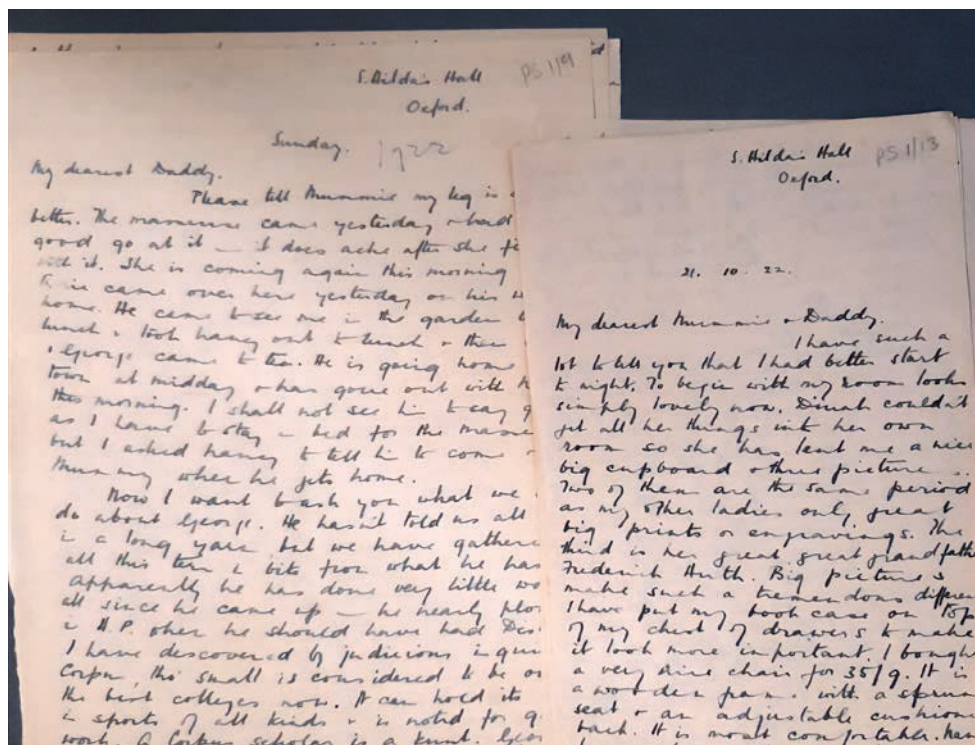 S. Hilda's Hall
PS 1/9
Oxford.
Sunday.
1922
My dearest Daddy.
Please tell Mummie my leg is
better. The masseuse came yesterday & had
good go at it — it does ache after she
with it. She is coming again this morning
came over here yesterday on his
home. He came to see me in the garden
lunch & took Nancy out to lunch & then
& George came to tea. He is going home
town at midday & has gone out with
this morning. I shall not see him to say
as I have to stay in bed for the
but I asked Nancy to tell him to come
Mummy when he gets home.
Now I want to ask you what we
do about George. He hasn't told us all
in a long yarn but we have
all this term in bits from what he has
apparently he has done very little
all since he came up — he nearly
in H.P. when he should have had
I have discovered by judicious
Corpus, tho' small is considered to be
the best colleges now. It can hold its
in sports of all kinds & is noted for
work. A Corpus scholar is a
S. Hilda's Hall
PS 1/13
Oxford.
21. 10. 22.
My dearest Mummie & Daddy.
I have such a
lot to tell you that I had better start
to night. To begin with my room looks
simply lovely now. Dinah couldn't
get all her things into her own
room so she has lent me a nice
big cupboard & three picture
Two of them are the same period
as my other ladies only great
big prints or engravings. The
third is her great great
Frederick Huth. Big pictures
make such a tremendous
I have put my book case on top
of my chest of drawers to make
it look more important. I bought
a very nice chair for 35/9. It is
a wooden frame with a
seat & an adjustable cushion
back. It is most comfortable.